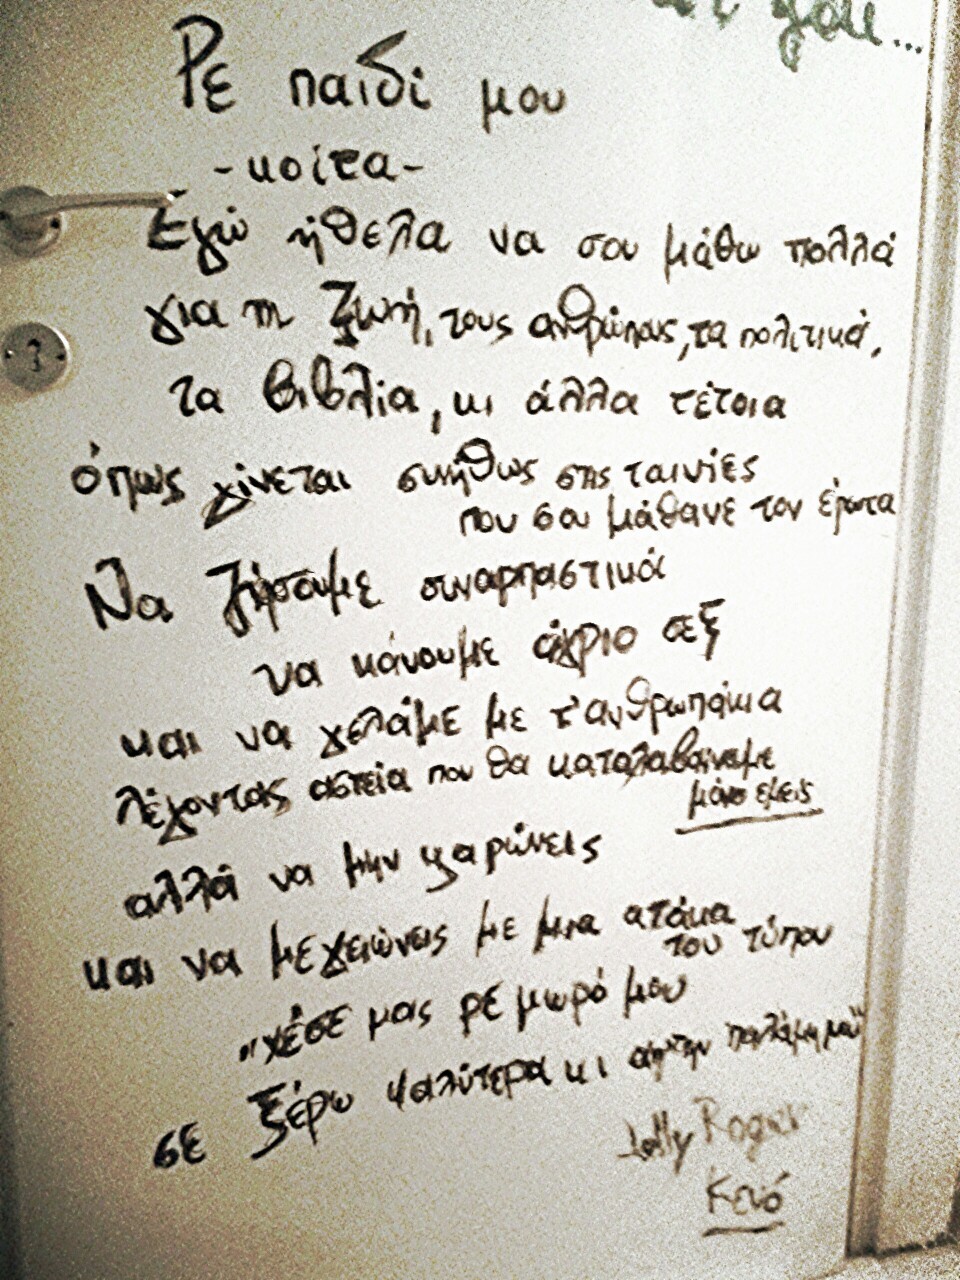 σου...
Ρε παιδί μου
-κοίτα-
Εγώ ήθελα να σου μάθω πολλά
για τη ζωή, τους ανθρώπους, τα πολιτικά,
τα βιβλία, κι άλλα τέτοια
όπως γίνεται συνήθως στις ταινίες
που σου μάθανε τον έρωτα
Να ζήσουμε συναρπαστικά
να κάνουμε άγριο σεξ
και να γελάμε με τ' ανθρωπάκια
λέγοντας αστεία που θα καταλαβαίνουμε
μόνο εμείς
αλλά να μην ψαρώνεις
και να με χειώνεις με μια ατάκα
του τύπου
"χέσε μας ρε μωρό μου
σε ξέρω ψαλύτερα κι απ' την παλάμη μου"
Jolly Roger
Κενό